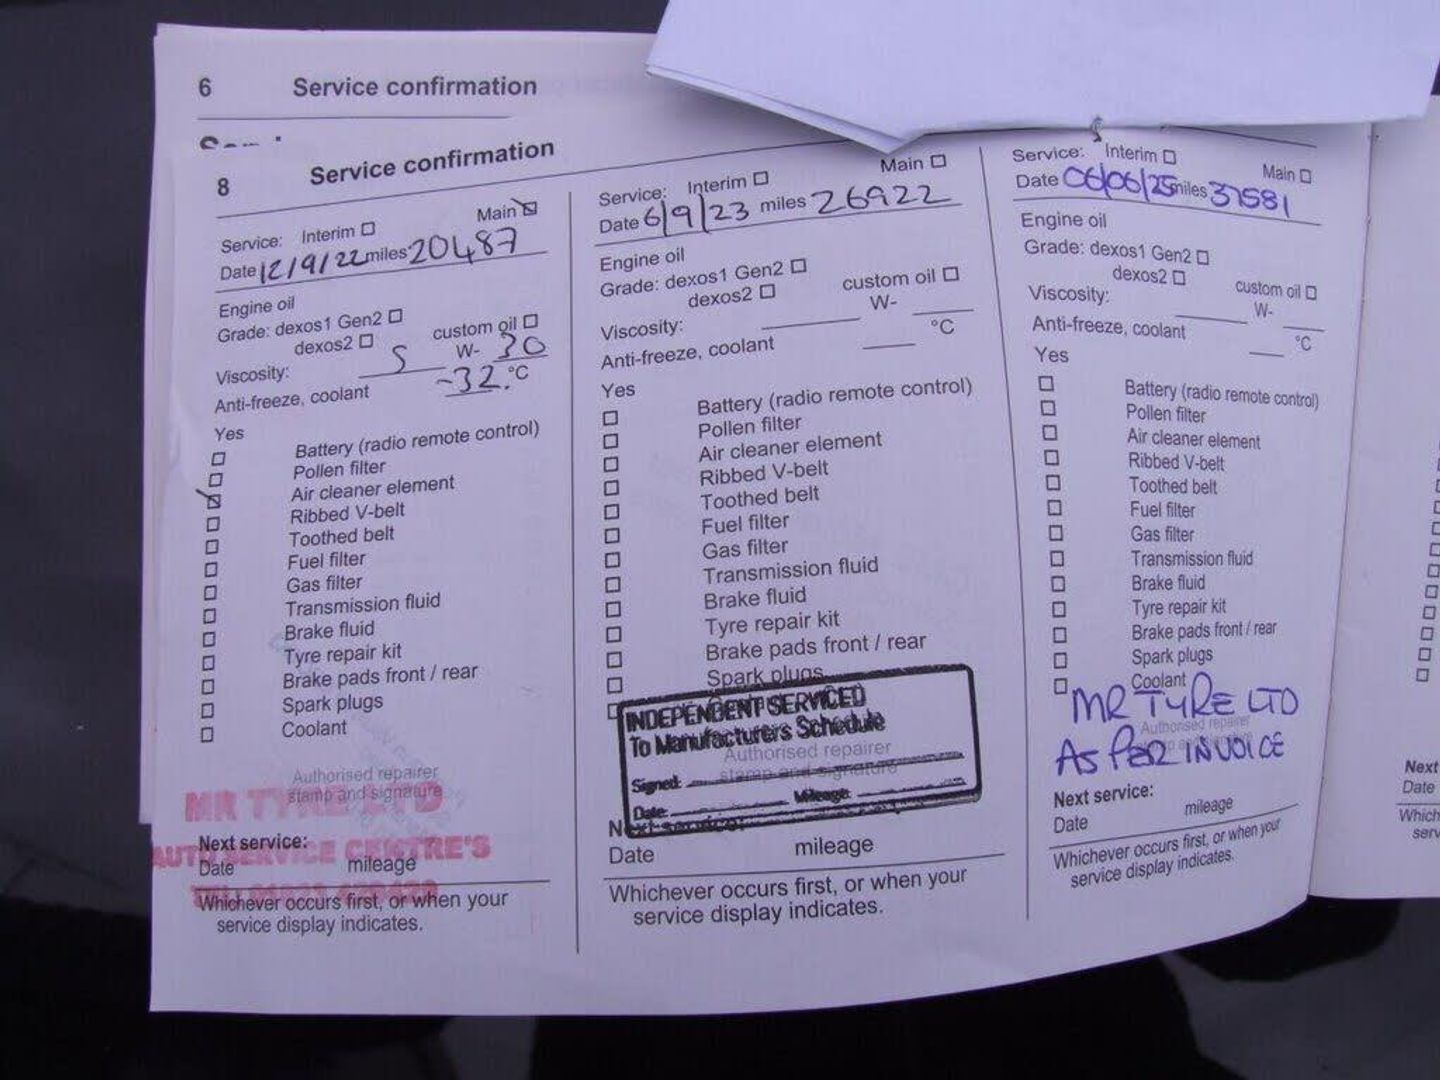 6 Service confirmation
8 Service confirmation
Service: Interim ☐ Main ☒
Date 12/9/22 miles 20487
Engine oil
Grade: dexos1 Gen2 ☐
dexos2 ☐ custom oil ☐
Viscosity: 5 W- 30
Anti-freeze, coolant -32 °C
Yes
☐ Battery (radio remote control)
☐ Pollen filter
☒ Air cleaner element
☐ Ribbed V-belt
☐ Toothed belt
☐ Fuel filter
☐ Gas filter
☐ Transmission fluid
☐ Brake fluid
☐ Tyre repair kit
☐ Brake pads front / rear
☐ Spark plugs
☐ Coolant
Authorised repairer
stamp and signature
MR TYRE LTD
Next service:
AUTO SERVICE CENTRE'S
Date mileage
Whichever occurs first, or when your
service display indicates.
Service: Interim ☐ Main ☐
Date 6/9/23 miles 26922
Engine oil
Grade: dexos1 Gen2 ☐
dexos2 ☐ custom oil ☐
Viscosity: W-
Anti-freeze, coolant °C
Yes
☐ Battery (radio remote control)
☐ Pollen filter
☐ Air cleaner element
☐ Ribbed V-belt
☐ Toothed belt
☐ Fuel filter
☐ Gas filter
☐ Transmission fluid
☐ Brake fluid
☐ Tyre repair kit
☐ Brake pads front / rear
☐ Spark plugs
INDEPENDENT SERVICED
To Manufacturers Schedule
Authorised repairer
stamp and signature
Signed:
Date: Mileage:
Next service:
Date mileage
Whichever occurs first, or when your
service display indicates.
Service: Interim ☐ Main ☐
Date 06/06/25 miles 37581
Engine oil
Grade: dexos1 Gen2 ☐
dexos2 ☐ custom oil ☐
Viscosity: W-
Anti-freeze, coolant °C
Yes
☐ Battery (radio remote control)
☐ Pollen filter
☐ Air cleaner element
☐ Ribbed V-belt
☐ Toothed belt
☐ Fuel filter
☐ Gas filter
☐ Transmission fluid
☐ Brake fluid
☐ Tyre repair kit
☐ Brake pads front / rear
☐ Spark plugs
☐ Coolant
MR TYRE LTD
Authorised repairer
AS PER INVOICE
Next service:
Date mileage
Whichever occurs first, or when your
service display indicates.
Next
Date